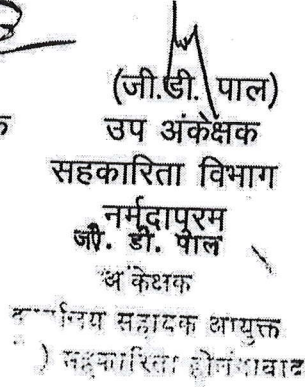 (जी.डी. पाल)
उप अंकेक्षक
सहकारिता विभाग
नर्मदापुरम
जी. डी. पाल
अंकेक्षक
कार्यालय सहायक आयुक्त
) सहकारिता होशंगाबाद